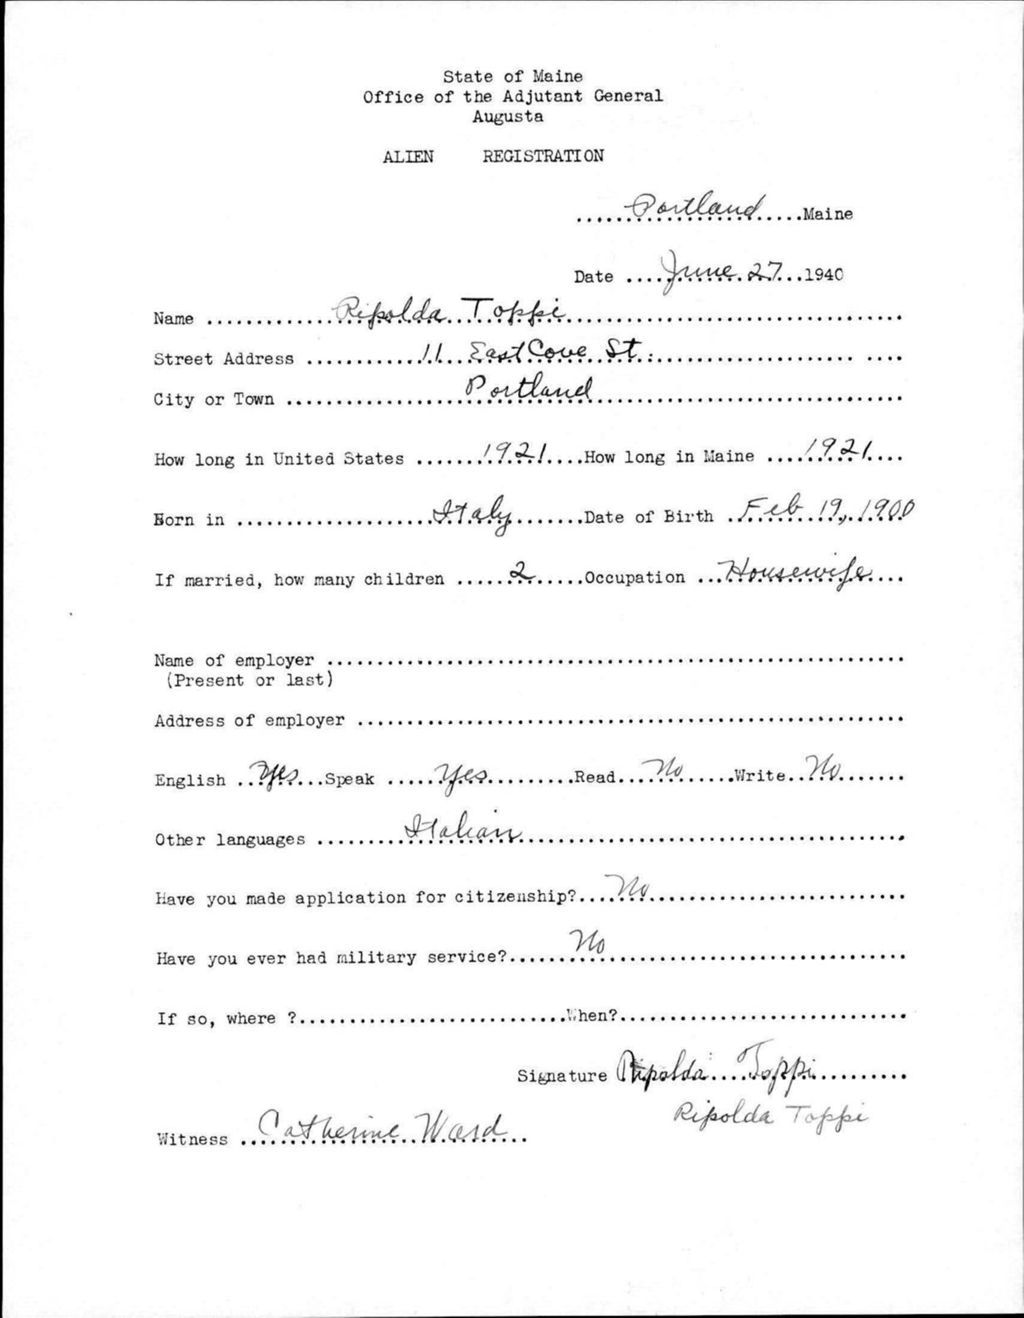 State of Maine
Office of the Adjutant General
Augusta
ALIEN REGISTRATION
Portland Maine
Date June 27 1940
Name Ripolda Toppi
Street Address 11 East Cove St.
City or Town Portland
How long in United States 1921 How long in Maine 1921
Born in Italy Date of Birth Feb 19, 1900
If married, how many children 2 Occupation Housewife
Name of employer
(Present or last)
Address of employer
English Yes Speak Yes Read No Write No
Other languages Italian
Have you made application for citizenship? No
Have you ever had military service? No
If so, where ? When?
Signature Ripolda Toppi
Ripolda Toppi
Witness Catherine Ward